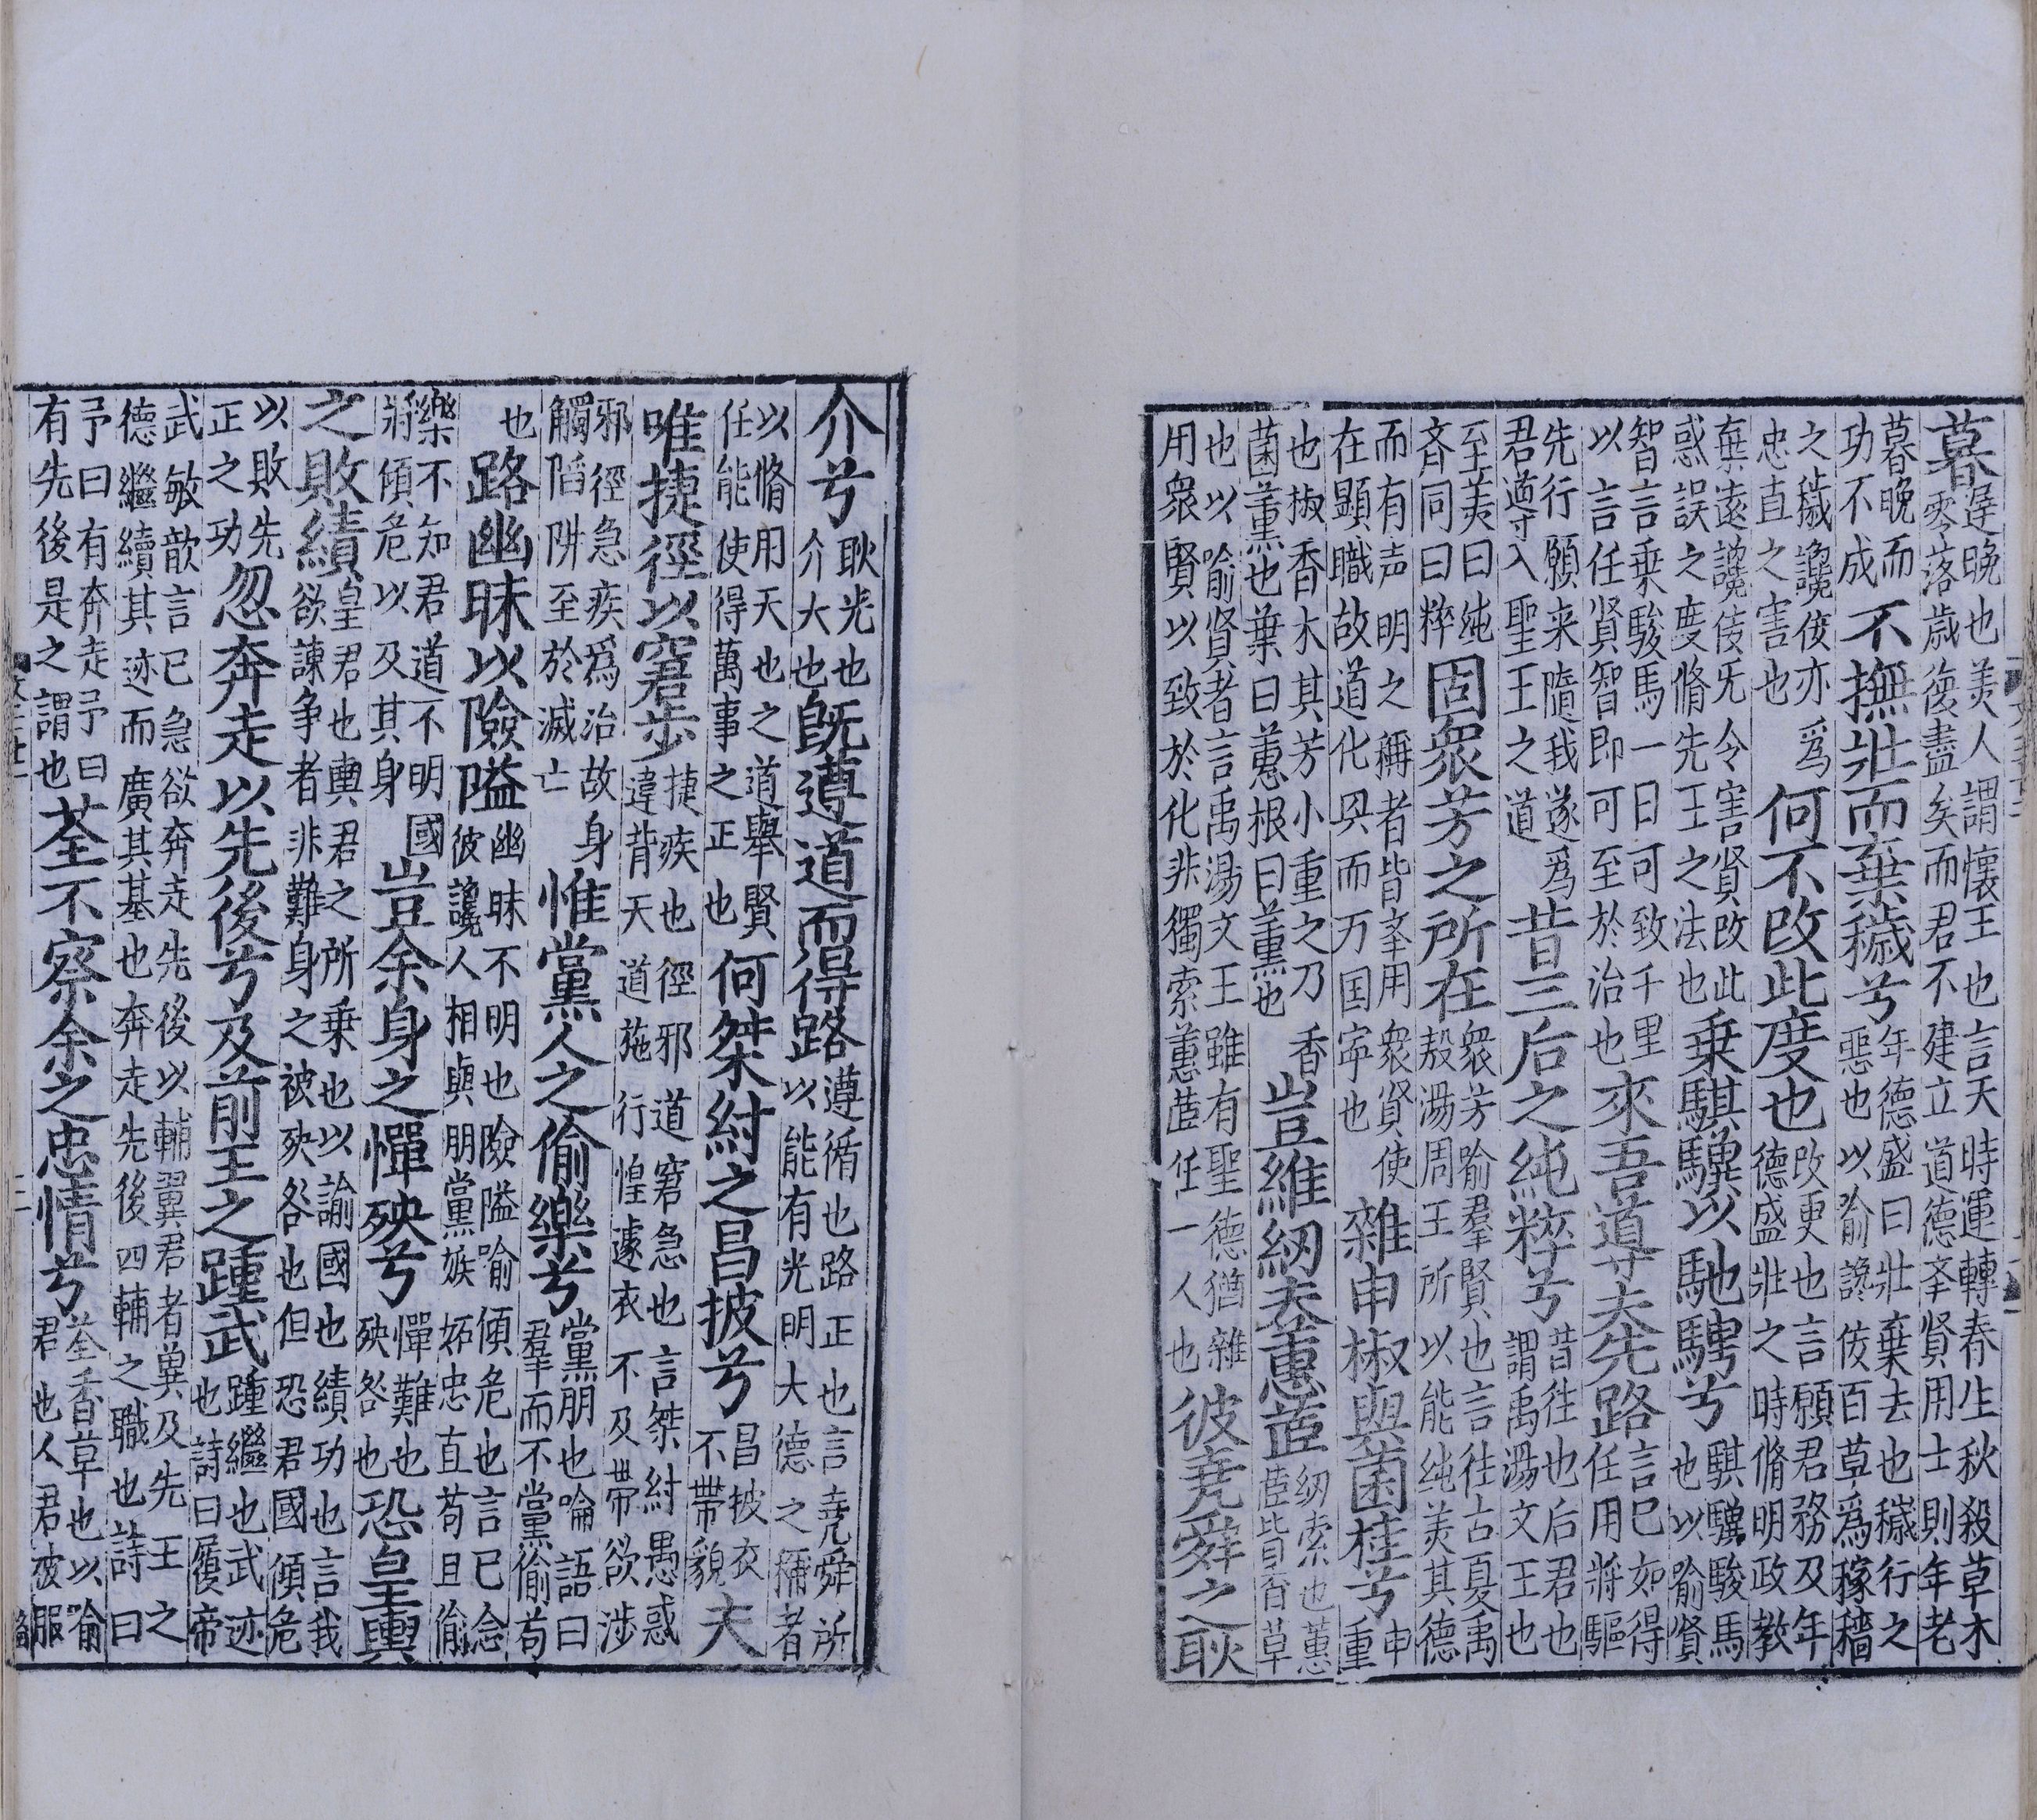 暮遲晚也美人謂懷王也言天時運轉春生秋殺草木
零落歳復盡矣而君不建立道德𢯱賢用士則年老
暮晚而不撫壯而棄穢兮年德盛曰壯棄去也穢行之
功不成惡也以喻讒佞百草為稼穡
之穢讒佞亦為何不改此度也改更也言願君務及年
忠直之害也德盛壯之時脩明政教
棄遠讒佞旡令害賢改此乗騏驥以馳騁兮騏驥駿馬
惑誤之度脩先王之法也也以喻賢
智言乗駿馬一日可致千里來吾導夫先路言已如得
以言任賢智即可至於治也任用將驅
先行願来隨我遂爲昔三后之純粹兮昔往也后君也
君遵入聖王之道謂禹湯文王也
至美曰纯固衆芳之所在衆芳喻羣賢也言往古夏禹
斉同曰粹殷湯周王所以能纯美其德
而有声明之稱者皆𢯱用衆賢使雜申椒與菌桂兮申
在顯職故道化具而万国寧也重
也椒香木其芳小重之乃香豈維紉夫蕙茝紉索也蕙
菌薰也葉曰蕙根曰薰也茝皆香草
也以喻賢者言禹湯文王雖有聖德猶雜彼堯舜之耿
用衆賢以致於化非獨索蕙茝任一人也
介兮耿光也既遵道而得路遵循也路正也言堯舜所
介大也以能有光明大德之稱者
以脩用天也之道舉賢何桀紂之昌披兮昌披衣夫
任能使得萬事之正也不帶貌
唯捷徑以窘步捷疾也徑邪道窘急也言桀紂愚惑
違背天道施行惶遽衣不及帶欲渉
邪徑急疾爲治故身惟黨人之偷樂兮黨朋也喻語曰
觸䧟阱至於滅亡羣而不黨偷苟
也路幽昧以險隘幽昧不明也險隘喻傾危也言已念
彼讒人相與朋黨嫉妬忠直苟且偷
樂不知君道不明國豈余身之憚殃兮憚難也恐皇輿
將傾危以及其身殃咎也
之敗績皇君也輿君之所乗也以諭國也績功也言我
欲諫争者非難身之被殃咎也但恐君國傾危
以敗先忽奔走以先後兮及前王之踵武踵繼也武迹
正之功也詩曰履帝
武敏歆言已急欲奔走先後以輔翼君者兾及先王之
德繼續其迹而廣其基也奔走先後四輔之職也詩曰
予曰有奔走予曰荃不察余之忠情兮荃香草也以喻
有先後是之謂也君也人君被服